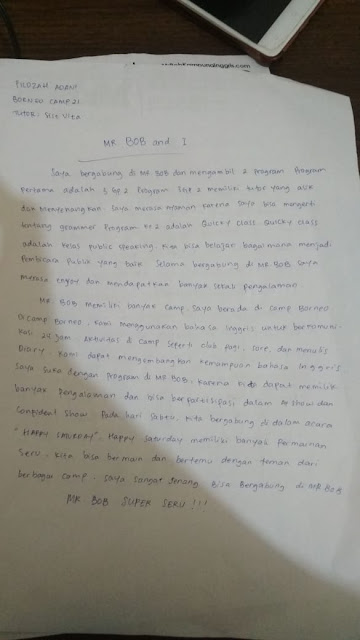 FILDZAH ADANI
BORNEO CAMP 21
TUTOR: SUE VITA
MR BOB and I
Saya bergabung di MR BOB dan mengambil 2 program. Program
pertama adalah 3 in 1. Program memiliki tutor yang asik
dan menyenangkan. Saya merasa nyaman karena saya bisa mengerti
tentang grammar. Program ke 2 adalah Quicky Class. Quicky class
adalah kelas public speaking. Kita bisa belajar bagaimana menjadi
Pembicara publik yang baik. Selama bergabung di MR.BOB saya
merasa enjoy dan mendapatkan banyak sekali pengalaman
MR. BOB memiliki banyak camp. Saya berada di camp Borneo.
Di camp Borneo, kami menggunakan bahasa Inggris untuk berkomuni-
kasi 24 jam. Aktivitas di Camp seperti club pagi, sore, dan menulis
Diary. Kami dapat mengembangkan kemampuan bahasa Inggris.
Saya suka dengan program di MR.BOB, karena kita dapat memiliki
banyak pengalaman dan bisa berpartisipasi dalam show dan
Confident Show. Pada hari Sabtu, kita bergabung di dalam acara
"HAPPY SATURDAY". Happy Saturday memiliki banyak permainan
seru. Kita bisa bermain dan bertemu dengan teman dari
berbagai camp. Saya sangat senang bisa bergabung di MR BOB
MR BOB SUPER SERU !!!